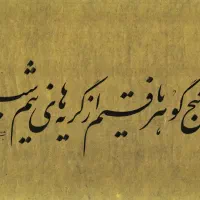 گنج گوهر یافتیم از گریه های نیم شب